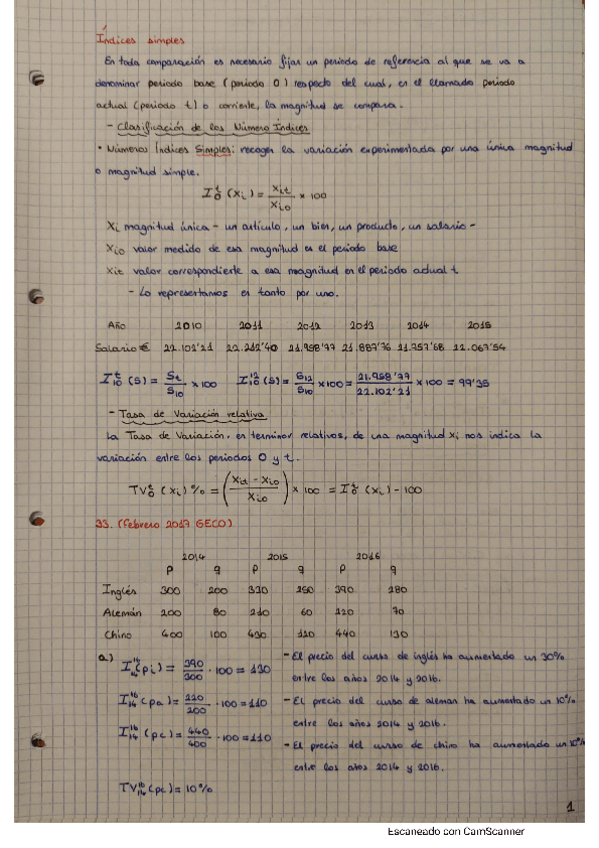 Índices simples
En toda comparación es necesario fijar un periodo de referencia al que se va a
denominar periodo base (periodo 0) respecto del cual, en el llamado periodo
actual (periodo t) o corriente, la magnitud se compara.
- Clasificación de los Número Índices
• Números Índices Simples: recoger la variación experimentada por una única magnitud
o magnitud simple.
I₀ᵗ (Xᵢ) = Xᵢₜ / Xᵢ₀ × 100
Xᵢ magnitud única - un artículo, un bien, un producto, un salario -
Xᵢ₀ valor medido de esa magnitud en el periodo base
Xᵢₜ valor correspondiente a esa magnitud en el periodo actual t
- Lo representamos en tanto por uno.
Año 2010 2011 2012 2013 2014 2015
Salario € 22.102'21 22.212'40 21.958'77 21.887'76 21.757'68 22.067'54
I₁₀ᵗ (S) = Sₜ / S₁₀ × 100 I₁₀¹² (S) = S₁₂ / S₁₀ × 100 = 21.958'77 / 22.102'21 × 100 = 99'35
- Tasa de Variación relativa
La Tasa de Variación, en terminor relativos, de una magnitud Xᵢ nos indica la
variación entre los periodos 0 y t.
TV₀ᵗ (Xᵢ) % = (Xᵢₜ - Xᵢ₀ / Xᵢ₀) × 100 = I₀ᵗ (Xᵢ) - 100
33. (Febrero 2017 GECO)
2014 2015 2016
P q P q P q
Inglés 300 200 330 250 390 280
Alemán 200 80 210 60 220 70
Chino 400 100 430 120 440 130
a) I₁₄¹⁶ (pi) = 390 / 300 · 100 = 130 - El precio del curso de inglés ha aumentado un 30%
entre los años 2014 y 2016.
I₁₄¹⁶ (pa) = 220 / 200 · 100 = 110 - El precio del curso de aleman ha aumentado un 10%
entre los años 2014 y 2016.
I₁₄¹⁶ (pc) = 440 / 400 · 100 = 110 - El precio del curso de chino ha aumentado un 10%
entre los años 2014 y 2016.
TV₁₄¹⁶ (pc) = 10%
1
Escaneado con CamScanner